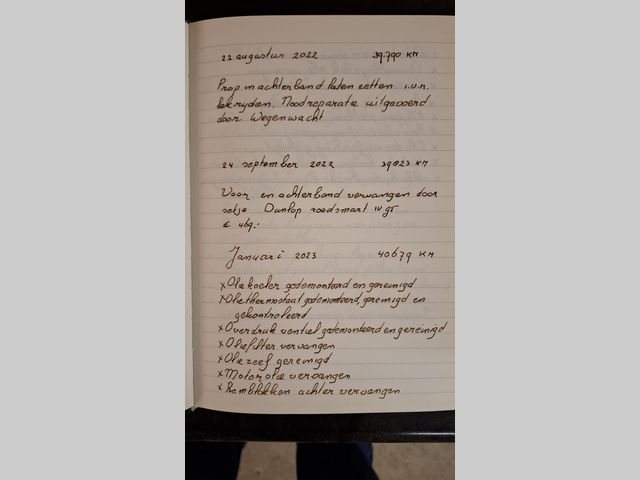 22 augustus 2022 39.790 KM
Prop in achterband laten zetten i.v.m.
lekryden. Noodreparatie uitgevoerd
door Wegenwacht
24 september 2022 39823 KM
Voor en achterband vervangen door
setje Dunlop roadsmart IV GT
€ 469.-
Januari 2023 40679 KM
x Oliekoeler gedemonteerd en gereinigd
x Oliethermostaat gedemonteerd, gereinigd en
gekontroleerd
x Overdruk ventiel gedemonteerd en gereinigd
x Oliefilter vervangen
x Oliezeef gereinigd
x Motorolie vervangen
x Remblokken achter vervangen